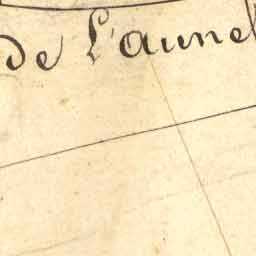 de L'aunel